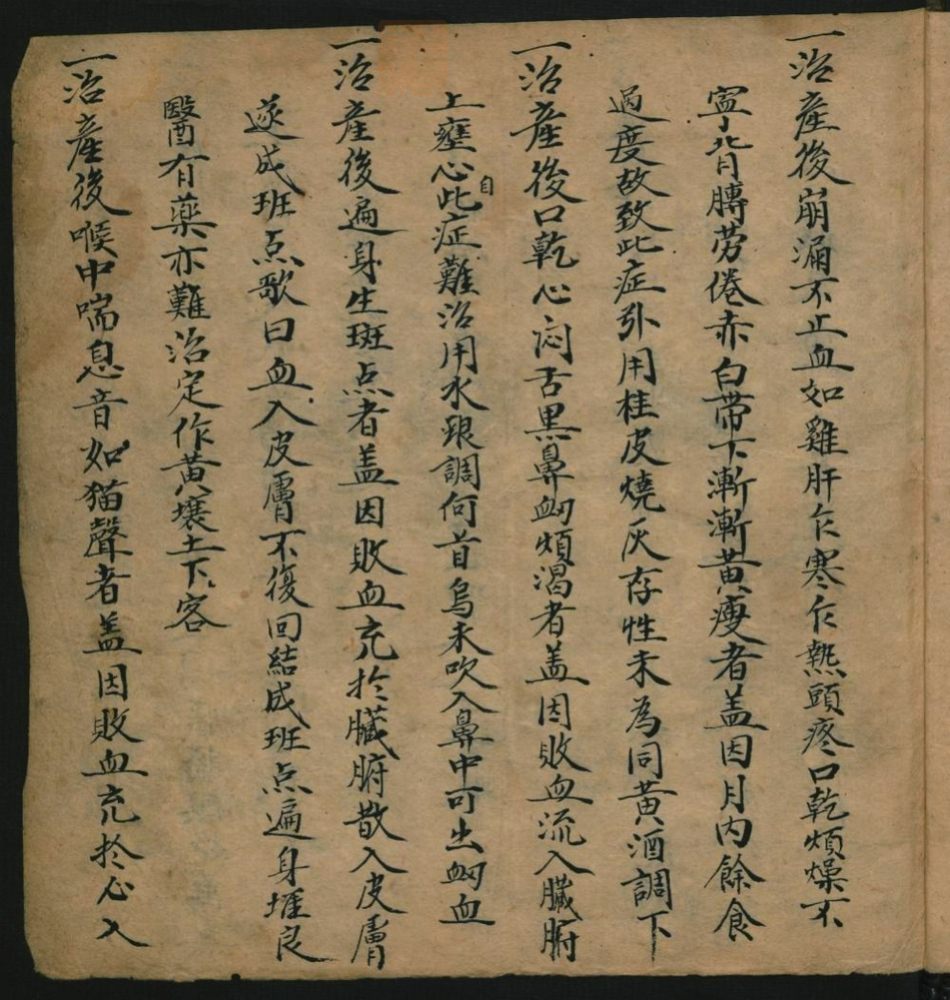 一治產後崩漏不止血如雞肝乍寒乍熱頭疼口乾煩燥不
寧背膊劳倦赤白带下漸漸黄瘦者盖因月内餘食
過度故致此症引用桂皮燒灰存性末為同黄酒調下
一治產後口乾心闷舌黒鼻衂煩渴者盖因敗血流入臟腑
上壅心此自症難治用水艰調何首烏末吹入鼻中可出衂血
一治產後遍身生斑点者盖因敗血充於臟腑散入皮膚
遂成班点歌曰血入皮膚不復回結成班点遍身堆良
醫有薬亦難治定作黄壤土下客
一治產後喉中喘息音如猫聲者盖因敗血充於心入